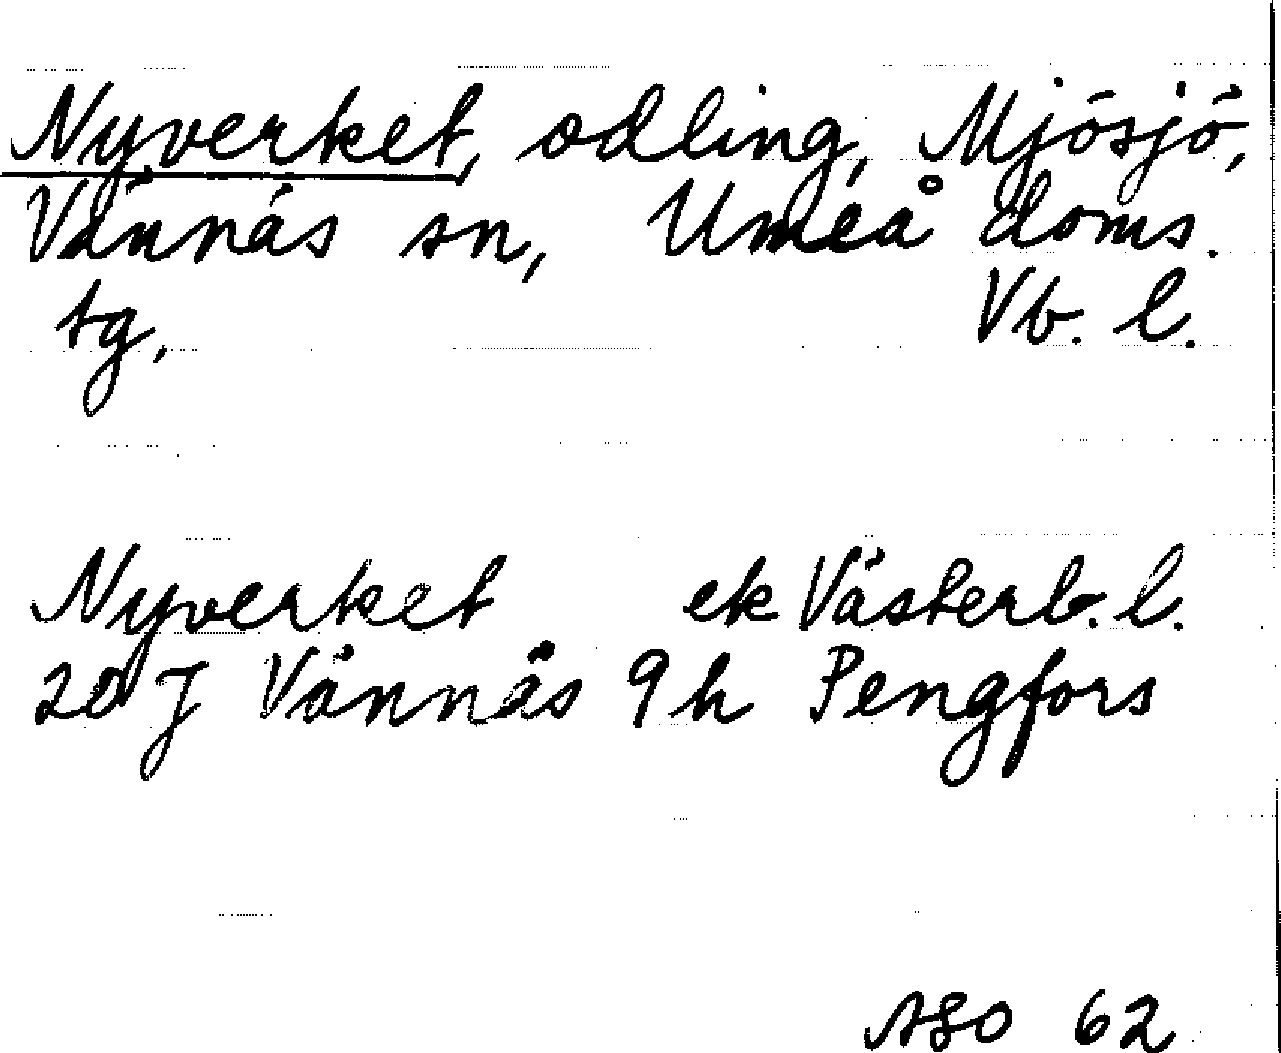 Nyverket, odling, Mjösjö,
Vännäs sn, Umeå doms.
tg,
Vb. l.
Nyverket ek Västerb. l.
20 J Vännäs 9 h Pengfors
ASO 62